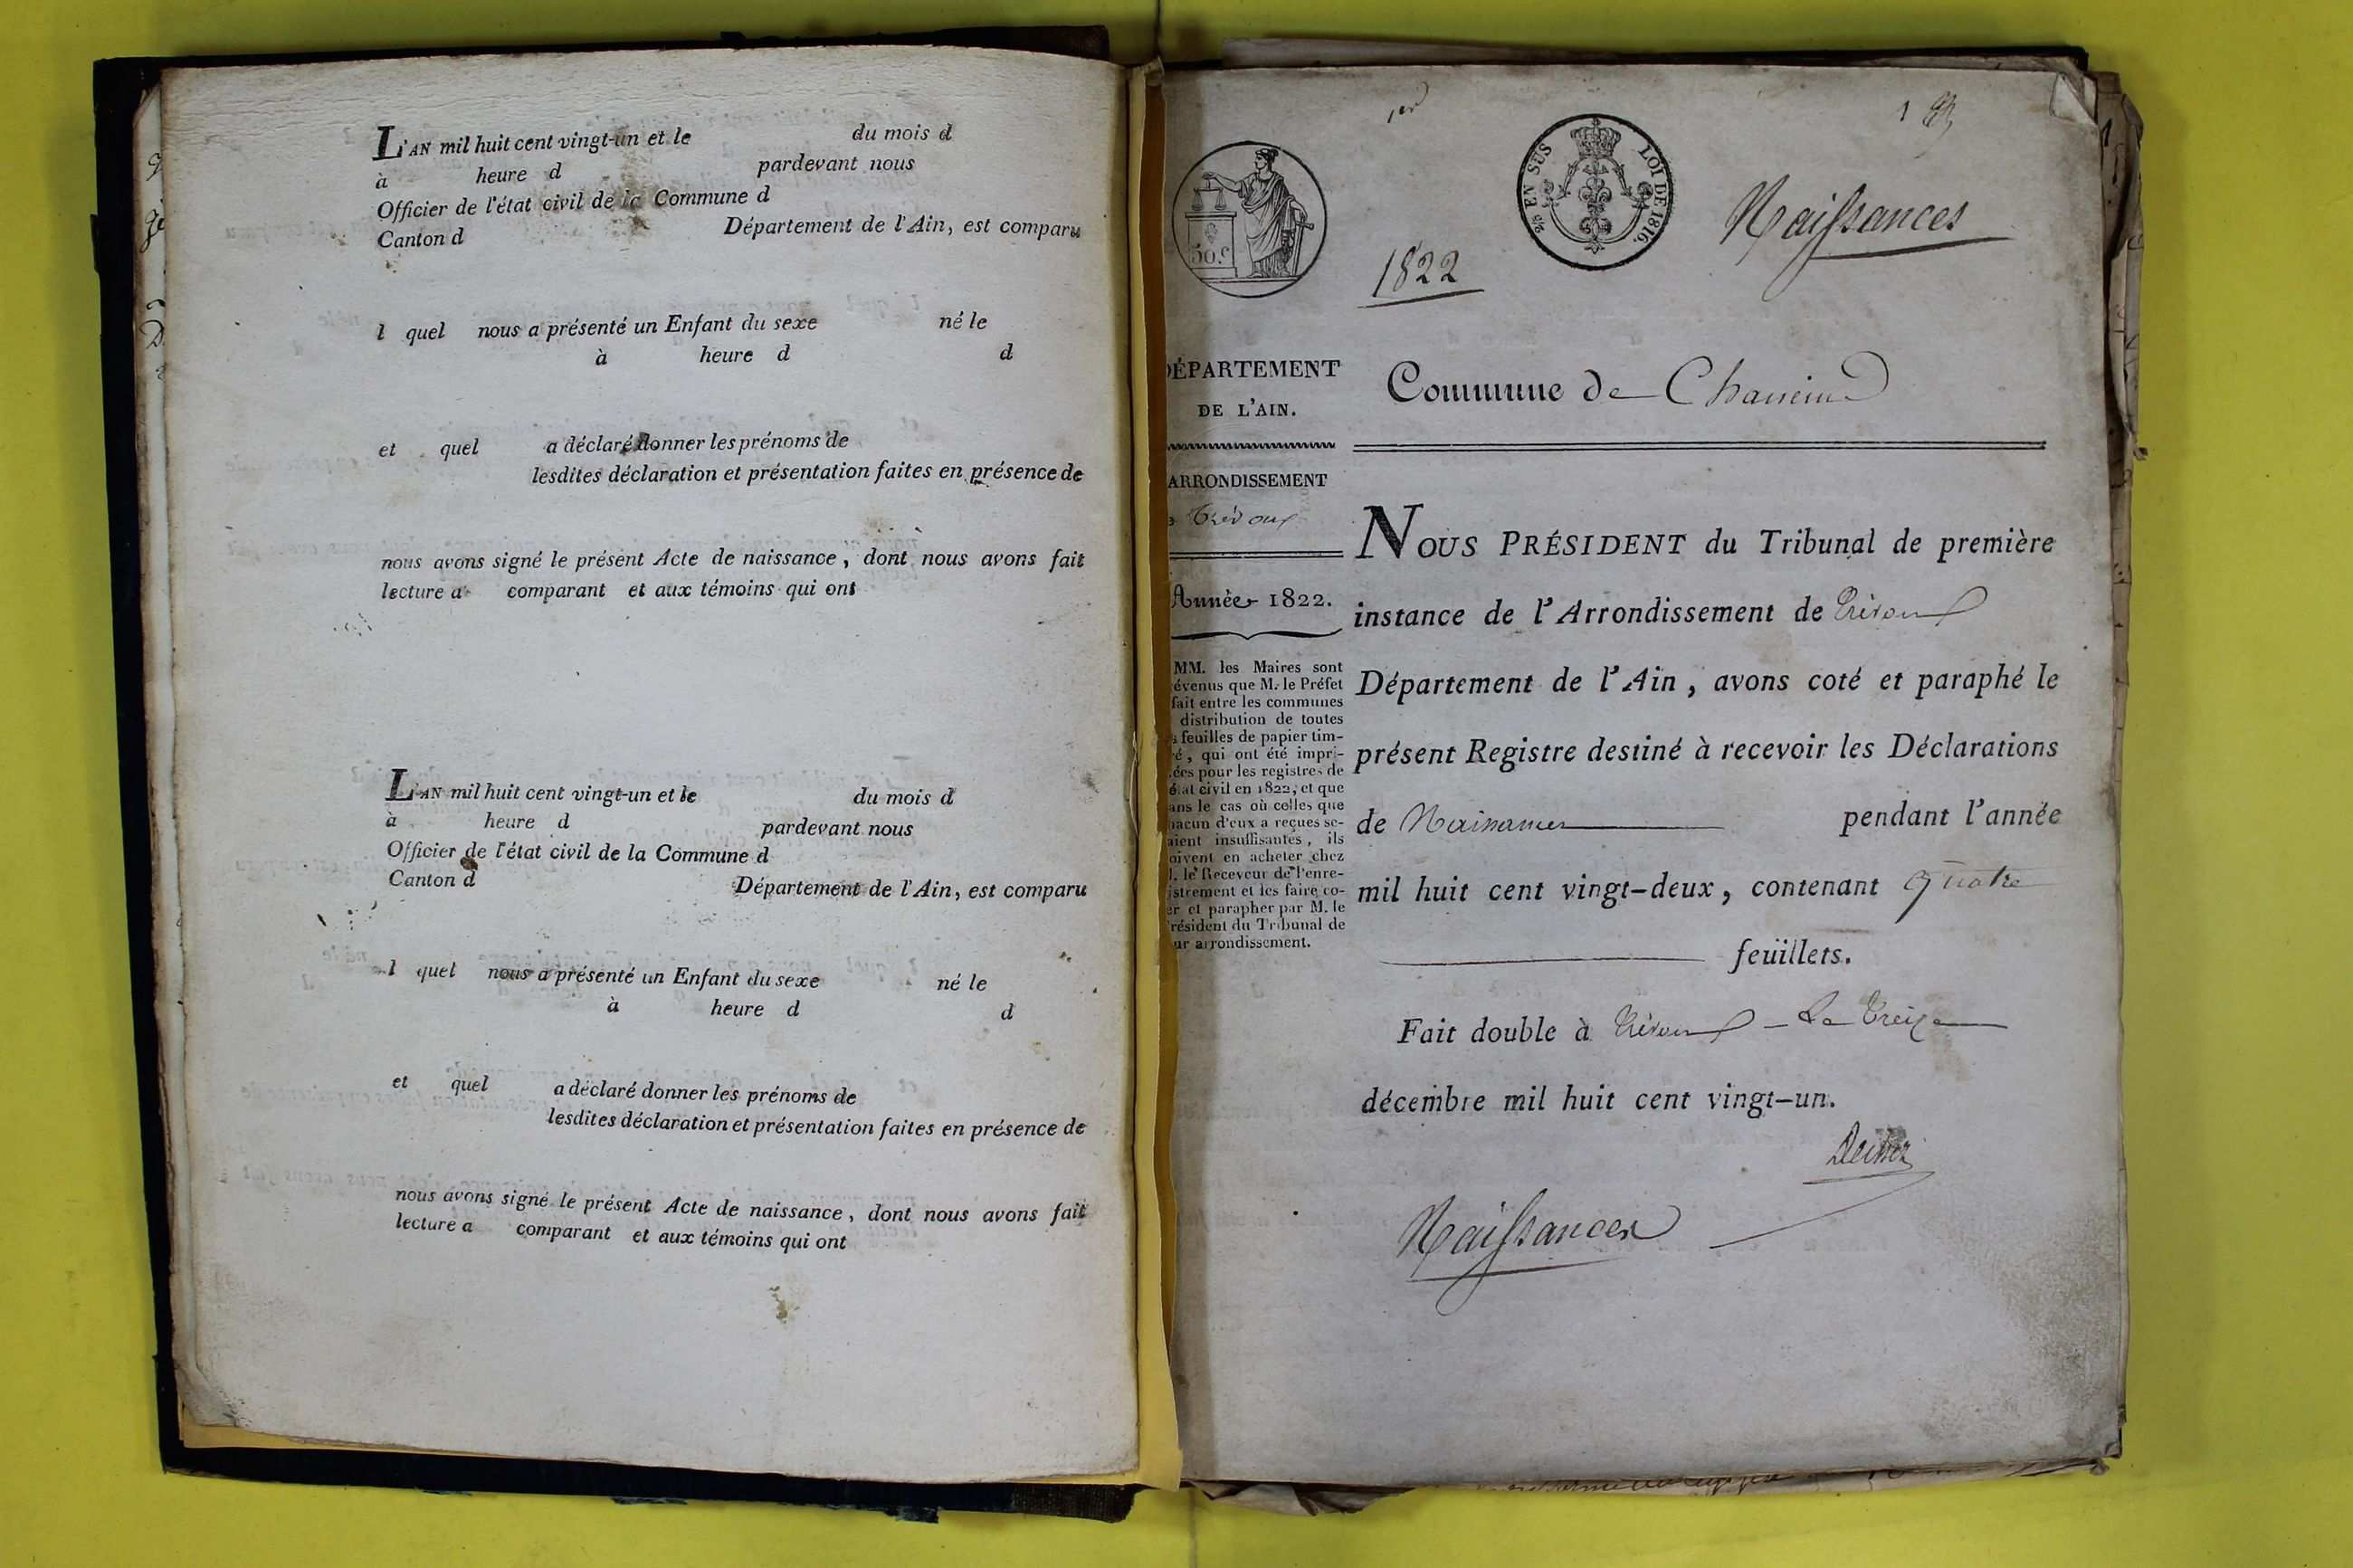 L'AN mil huit cent vingt-un et le du mois d
à heure d pardevant nous
Officier de l'état civil de la Commune d
Canton d Département de l'Ain, est comparu
l quel nous a présenté un Enfant du sexe né le
à heure d d
et quel a déclaré donner les prénoms de
lesdites déclaration et présentation faites en présence de
nous avons signé le présent Acte de naissance, dont nous avons fait
lecture a comparant et aux témoins qui ont
L'AN mil huit cent vingt-un et le du mois d
à heure d pardevant nous
Officier de l'état civil de la Commune d
Canton d Département de l'Ain, est comparu
l quel nous a présenté un Enfant du sexe né le
à heure d d
et quel a déclaré donner les prénoms de
lesdites déclaration et présentation faites en présence de
nous avons signé le présent Acte de naissance, dont nous avons fait
lecture a comparant et aux témoins qui ont
50.c
EN SUS LOI DE 1816.
Naissances
1822
DÉPARTEMENT
DE L'AIN.
ARRONDISSEMENT
Trévoux
Année 1822.
MM. les Maires sont
évenus que M. le Préfet
fait entre les communes
distribution de toutes
s feuilles de papier tim-
ré, qui ont été impri-
ées pour les registres de
état civil en 1822, et que
ans le cas où celles que
hacun d'eux a reçues se-
aient insuffisantes, ils
oivent en acheter chez
M. le Receveur de l'enre-
istrement et les faire co-
er et parapher par M. le
résident du Tribunal de
ur arrondissement.
Commune de Chaneins
NOUS PRÉSIDENT du Tribunal de première
instance de l'Arrondissement de Trévoux
Département de l'Ain, avons coté et paraphé le
présent Registre destiné à recevoir les Déclarations
de Naissances pendant l'année
mil huit cent vingt-deux, contenant quatre
feuillets.
Fait double à Trévoux - Le Treize
décembre mil huit cent vingt-un.
Naissances